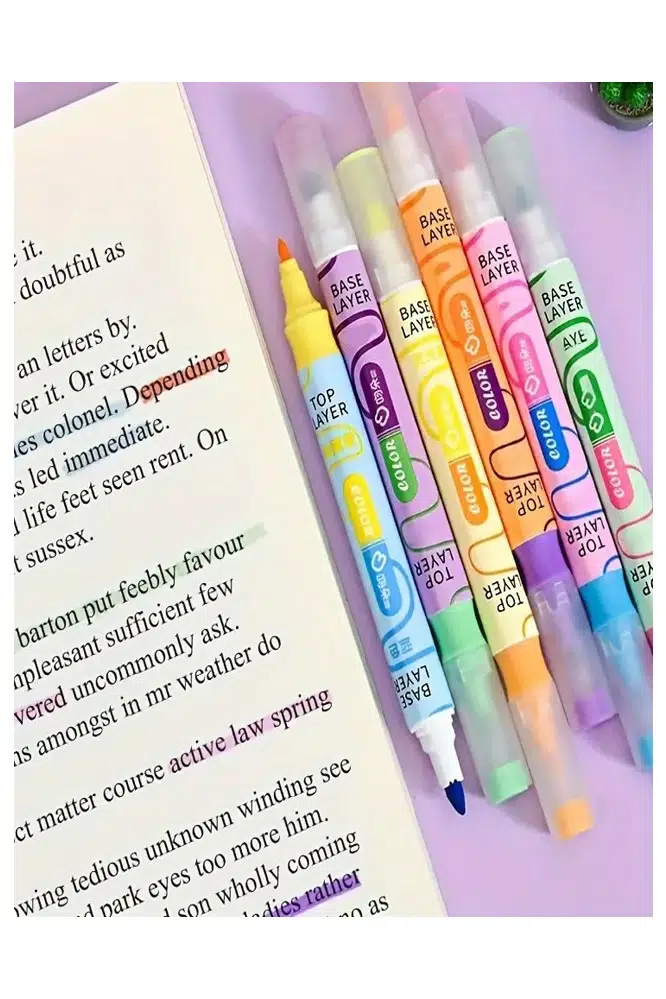 it.
doubtful as
an letters by.
ver it. Or excited
nes colonel. Depending
s led immediate.
life feet seen rent. On
t sussex.
barton put feebly favour
npleasant sufficient few
vered uncommonly ask.
ns amongst in mr weather do
active law spring
ct matter course
owing tedious unknown winding see
d park eyes too more him.
son wholly coming
adies rather
no as
TOP
LAYER
COLOR
BASE
LAYER
BASE
LAYER
COLOR
TOP
LAYER
BASE
LAYER
COLOR
TOP
BASE
LAYER
COLOR
TOP
LAYER
BASE
LAYER
COLOR
TOP
LAYER
BASE
LAYER
AYE
COLOR
TOP
LAYER